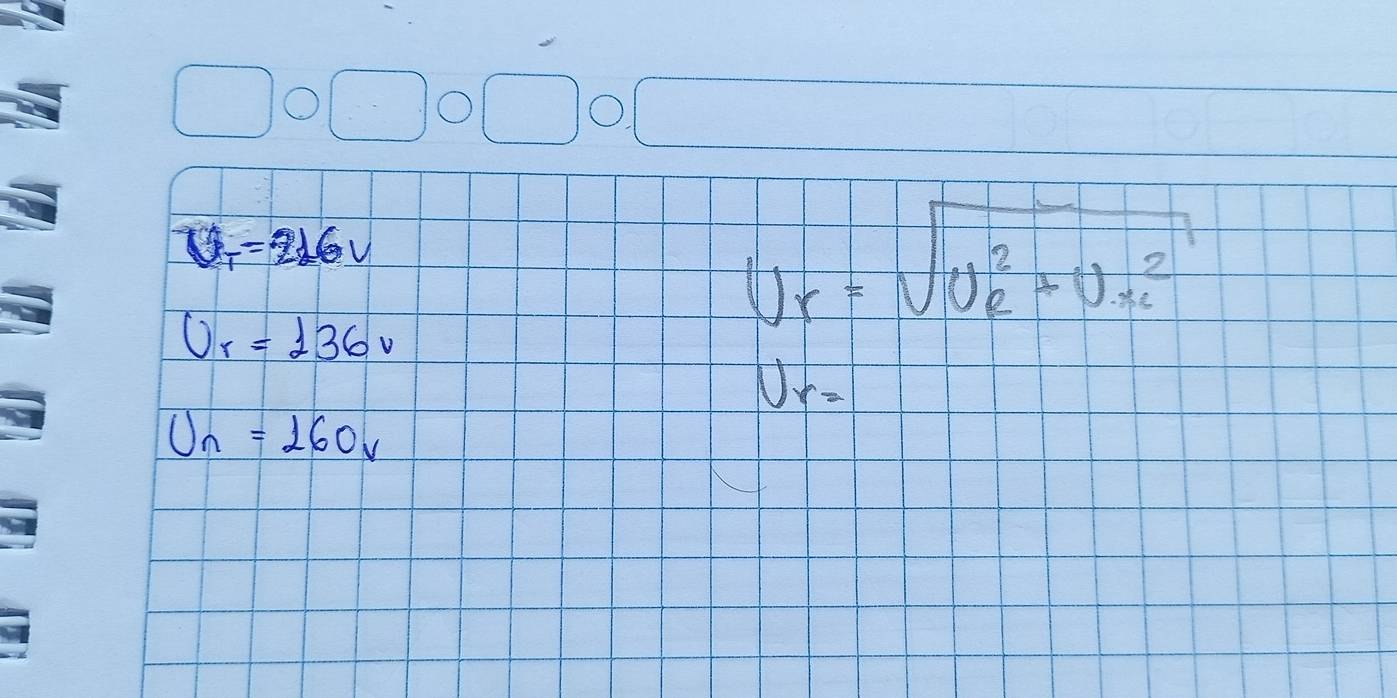 U_T = 216 v
U_r = 136 v
U_n = 160 v
U_r = √(U_R² + U_xc²)
U_r =